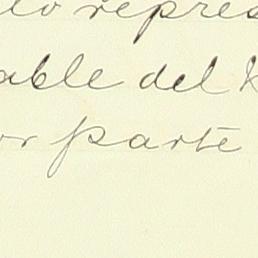 do repres
able del
or parte